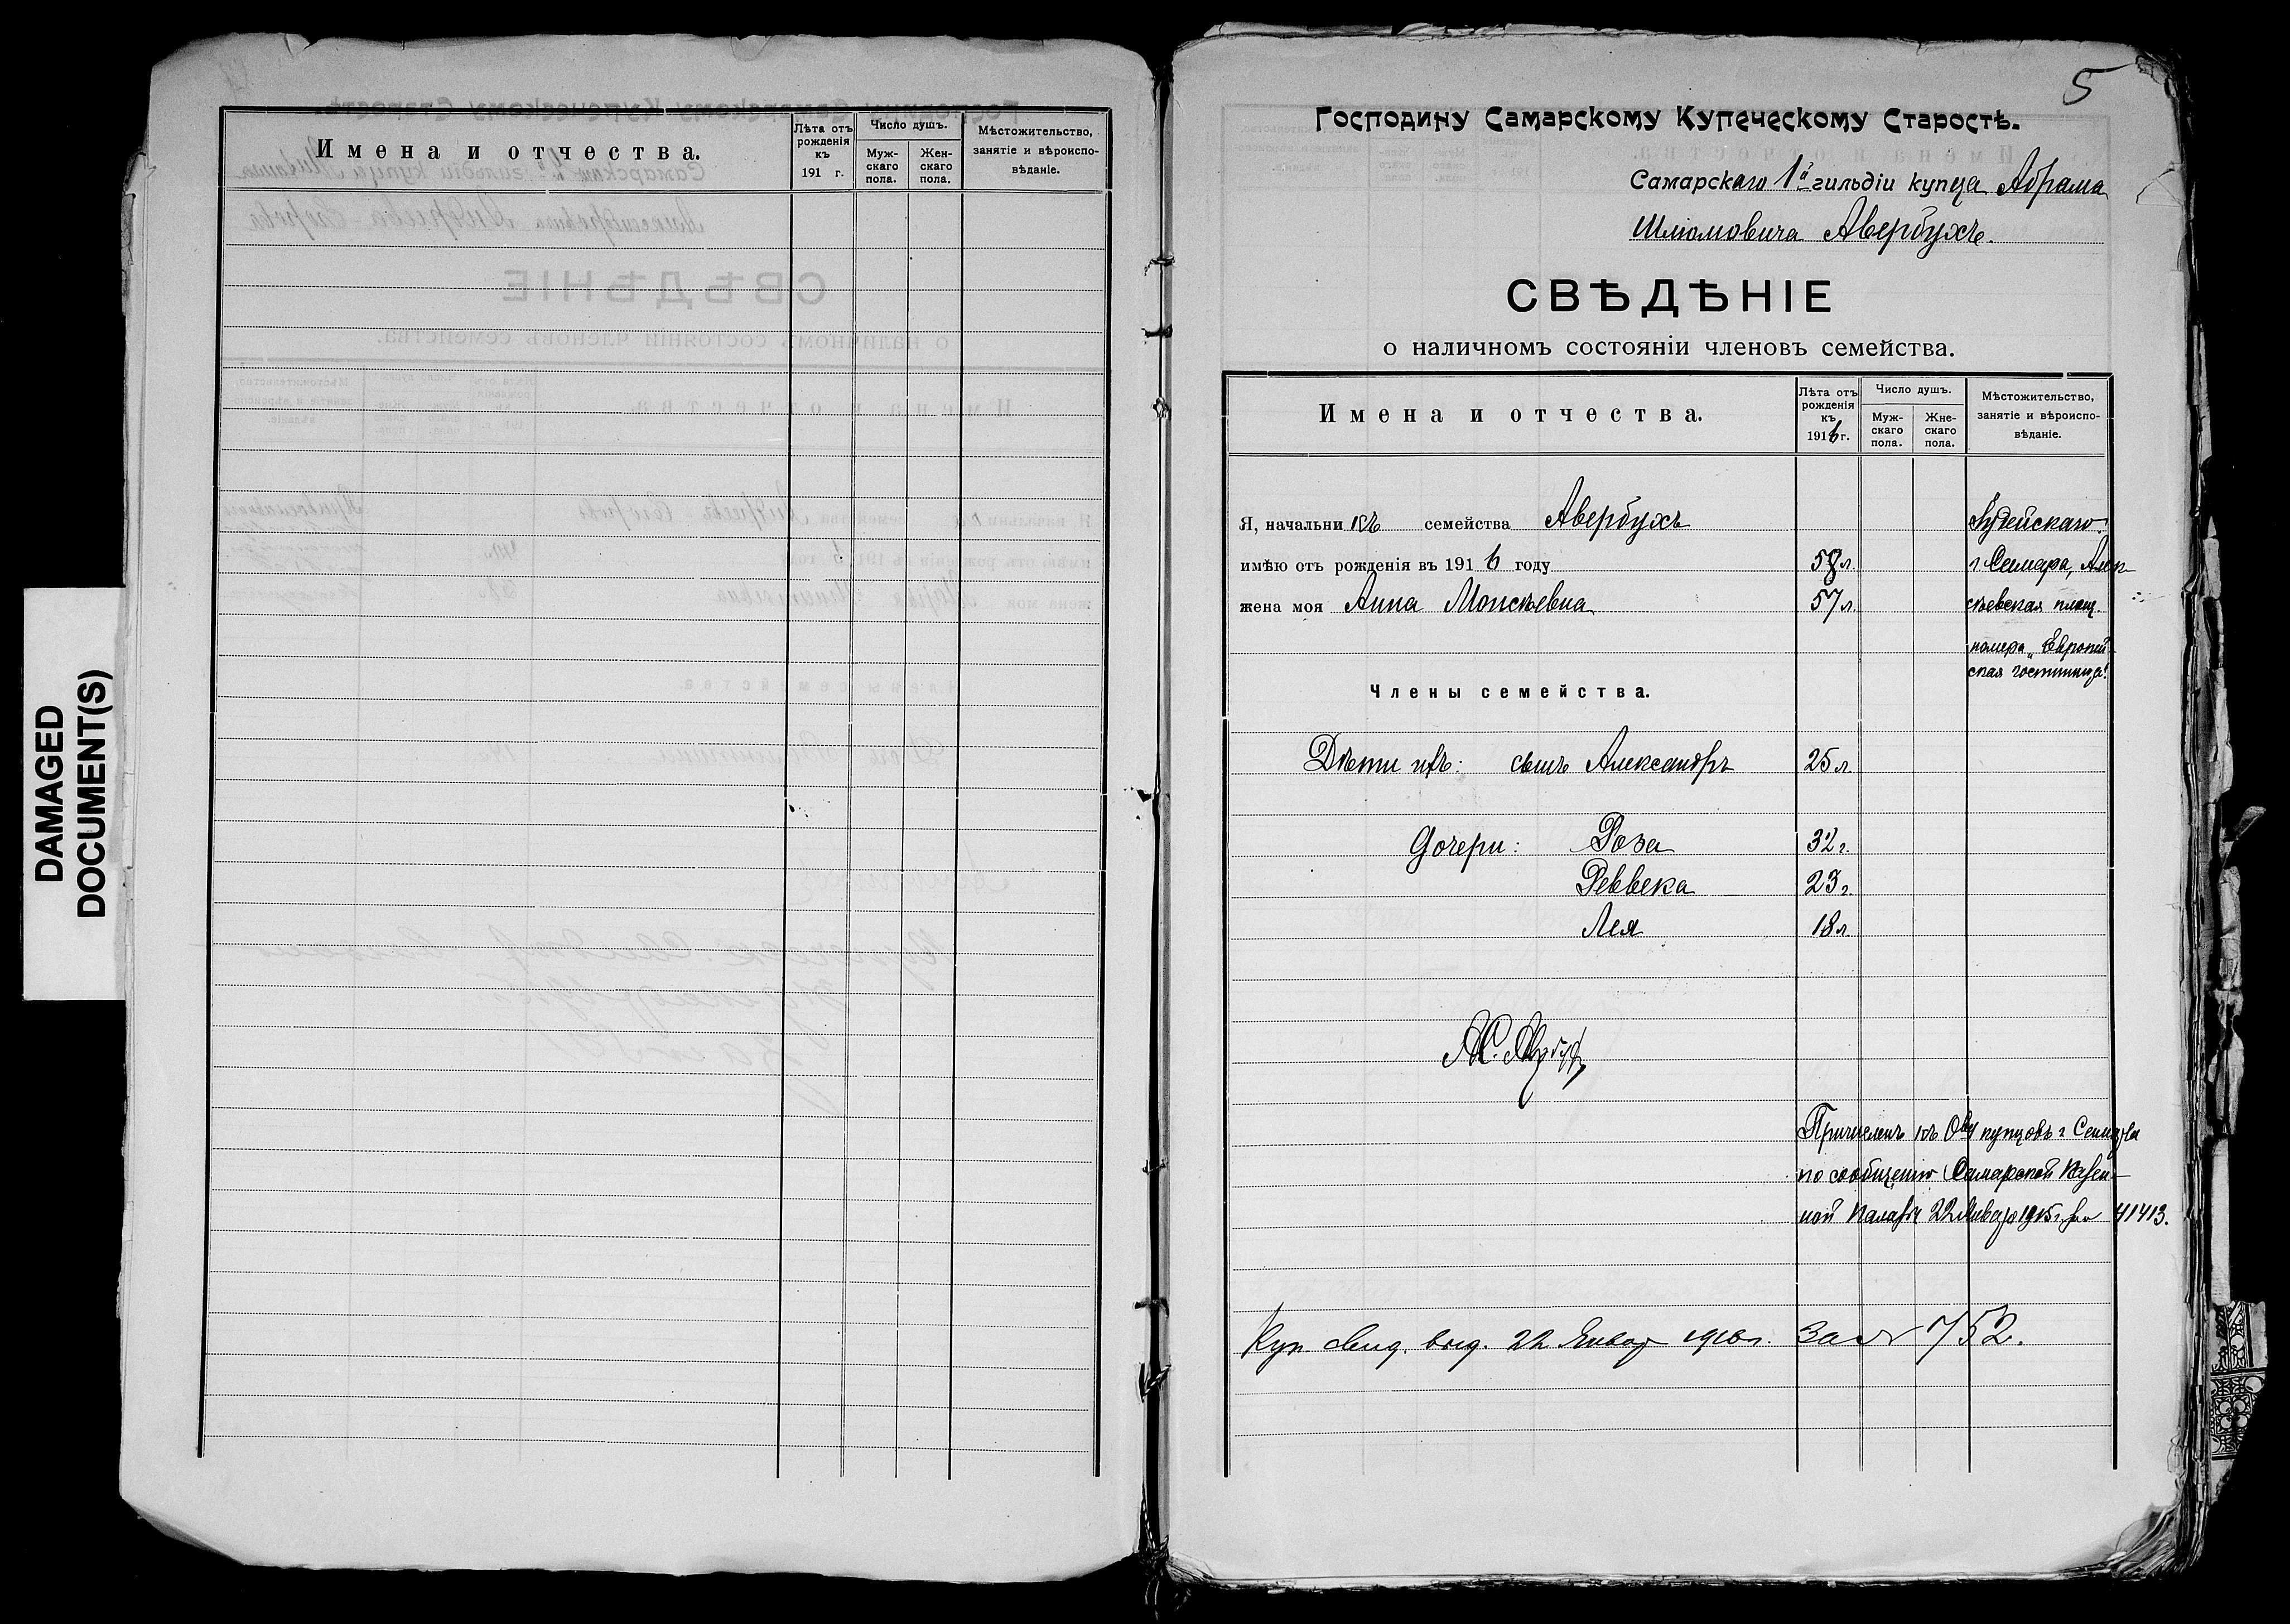 DAMAGED
DOCUMENT(S)
Имена и отчества.
Лѣта отъ
рожденія
къ
191 г.
Число душъ.
Муж-
скаго
пола.
Жен-
скаго
пола.
Мѣстожительство,
занятіе и вѣроиспо-
вѣданіе.
5
Господину Самарскому Купеческому Старостѣ.
Самарскаго 1й гильдіи купца Абрама
Шліомовича Авербухъ.
СВѢДѢНІЕ
о наличномъ состояніи членовъ семейства.
Имена и отчества.
Лѣта отъ
рожденія
къ
1916 г.
Число душъ.
Муж-
скаго
пола.
Жне-
скаго
пола.
Мѣстожительство,
занятіе и вѣроиспо-
вѣданіе.
Я, начальникъ семейства Авербухъ Іудейскаго.
имѣю отъ рожденія въ 1916 году 58 л. г. Самара, Алек-
жена моя Анна Моисѣевна 57 л. сѣевская площ.
номера „Европей-
ская гостинница"
Члены семейства.
Дѣти ихъ: сынъ Александръ 25 л.
дочери: Роза 32 г.
Реввека 23 г.
Лея 18 л.
Причисленъ къ Ову купцовъ г. Самары
по сообщенію Самарской Казен-
ной Палаты 22 Января 1915 г. за 41413.
Куп. свид. выд. 22 Январ 1916 г. за № 752.